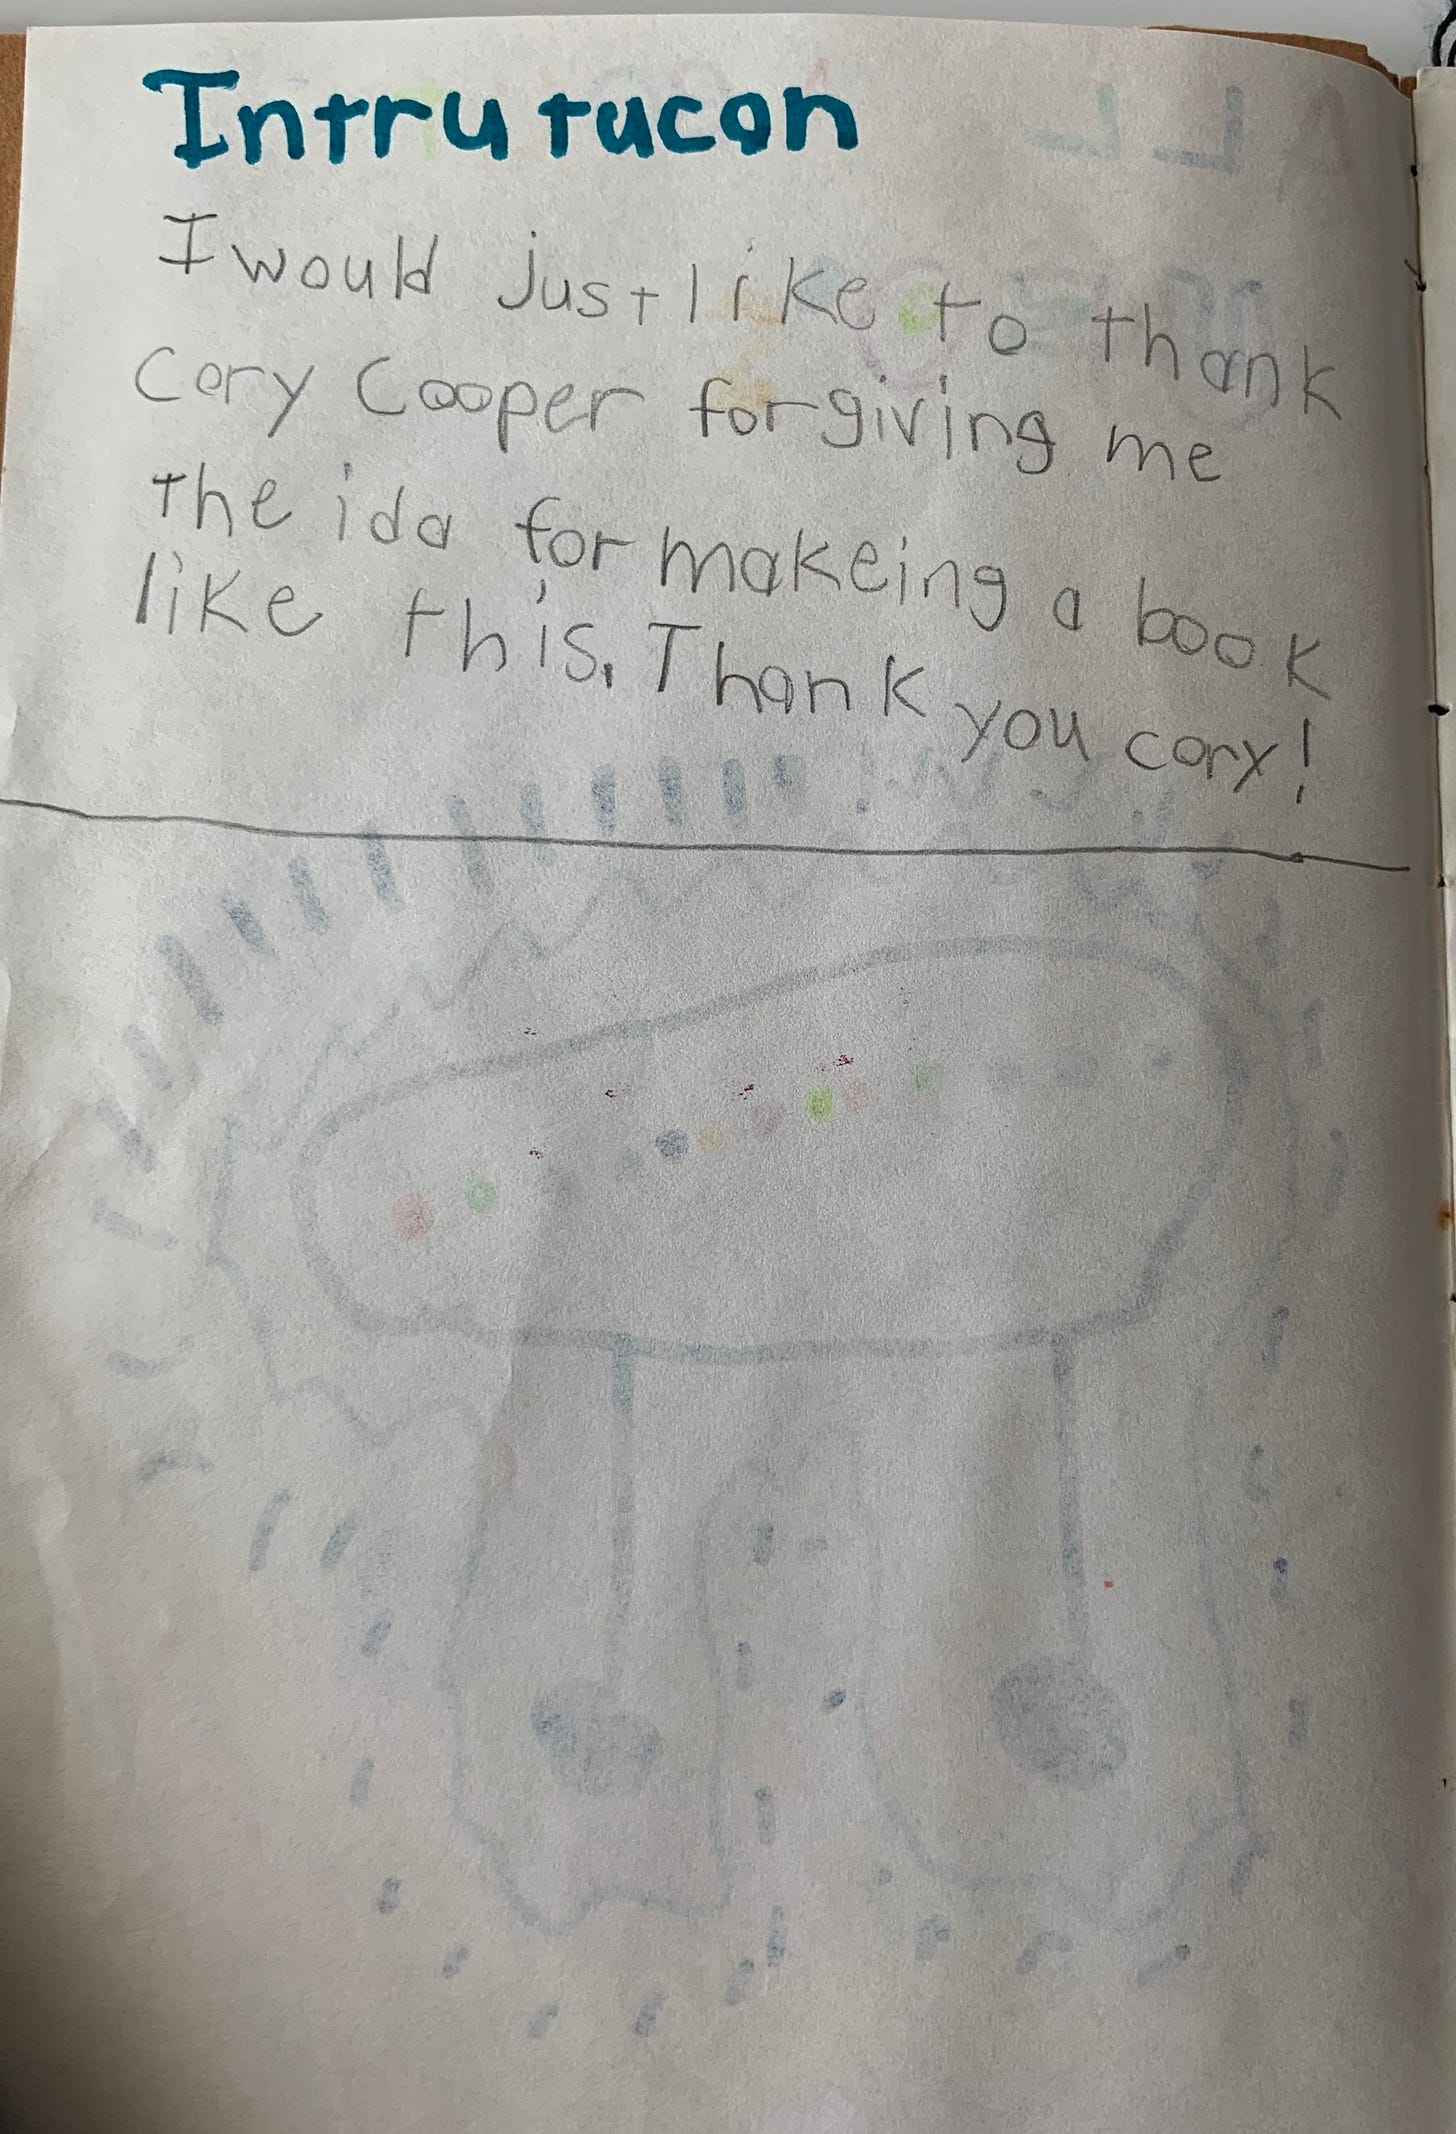 Intrutucon
I would just like to thank
Cory Cooper for giving me
the ida for makeing a book
like this. Thank you cory!